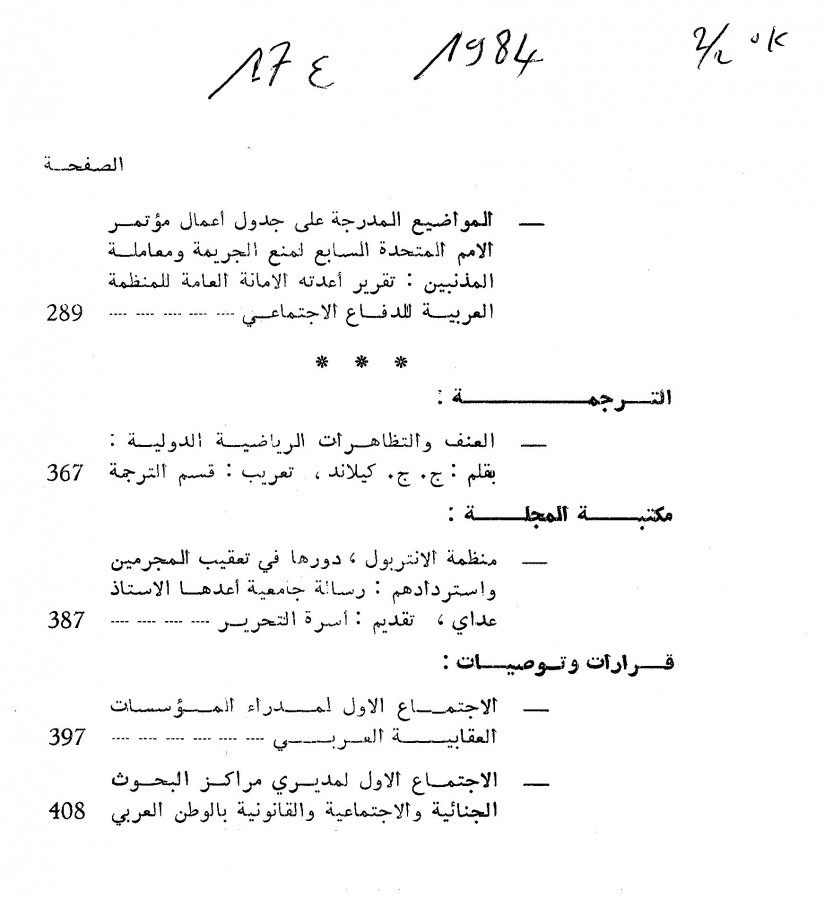 17 ع 1984 2/2 OK
الصفحة
— المواضيع المدرجة على جدول اعمال مؤتمر
الامم المتحدة السابع لمنع الجريمة ومعاملة
المذنبين : تقرير أعدته الامانة العامة للمنظمة
العربية للدفاع الاجتماعي ---- ---- ---- ---- ---- 289
* * *
الترجمة :
— العنف والتظاهرات الرياضية الدولية :
بقلم : ج. ج. كيلاند ، تعريب : قسم الترجمة 367
مكتبة المجلة :
— منظمة الانتربول ، دورها في تعقيب المجرمين
واستردادهم : رسالة جامعية أعدها الاستاذ
عداي ، تقديم : أسرة التحرير ---- ---- ---- ---- 387
قرارات وتوصيات :
— الاجتماع الاول لمدراء المؤسسات
العقابية العربي ---- ---- ---- ---- ---- ---- 397
— الاجتماع الاول لمديري مراكز البحوث
الجنائية والاجتماعية والقانونية بالوطن العربي 408